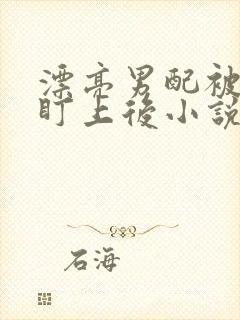 漂亮男配被
盯上後小說
石海